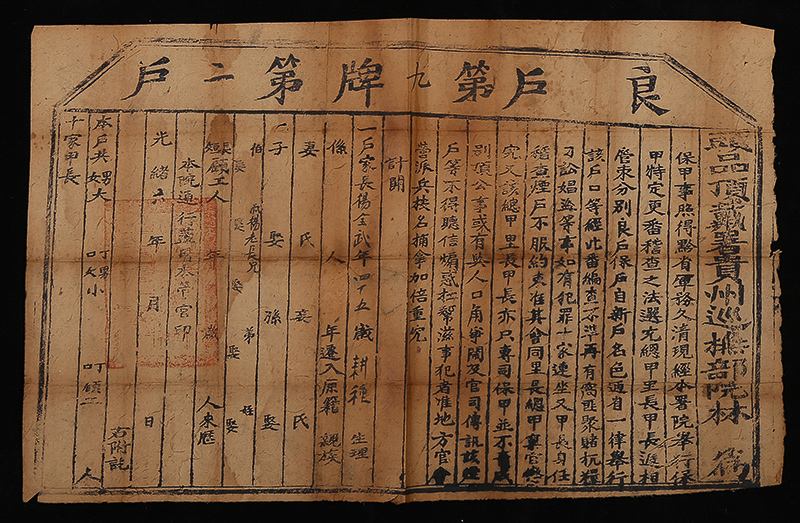 良戶第九牌第二戶
頭品頂戴署貴州巡撫部院林 為
保甲事照得黔省軍務久清現經本署院舉行保
甲特定更番稽查之法選充總甲里長甲長遞相
管束分別良戶保戶自新戶名色通省一律舉行
該戶口等經此番編查不準再有窩匪聚賭抗糧
刁訟娼盜等事如有犯罪十家連坐又甲長身任
稽查煙戶不服約束准其會同里長總甲稟官
究又該總甲里長甲長亦只專司保甲並不
別項公事或有與人口角爭鬧及官司傳訊該
戶等不得聽信煽惑幫滋事犯者准地方官會
營派兵按名捕拿加倍重究
計開
一戶家長楊全武年四十五歲 耕種 生理
係 人 年遷入原籍 親族
妻 氏 妾 氏
子 娶 孫 娶
伯 叔楊老長兄 弟 姪
娶 娶 娶 娶
長短雇工人 年 歲 人來歷
本院通行蓋用本管官印
光緒六年 月 日
右附註
本戶共男女大 丁口男女小 丁口 人
十家甲長